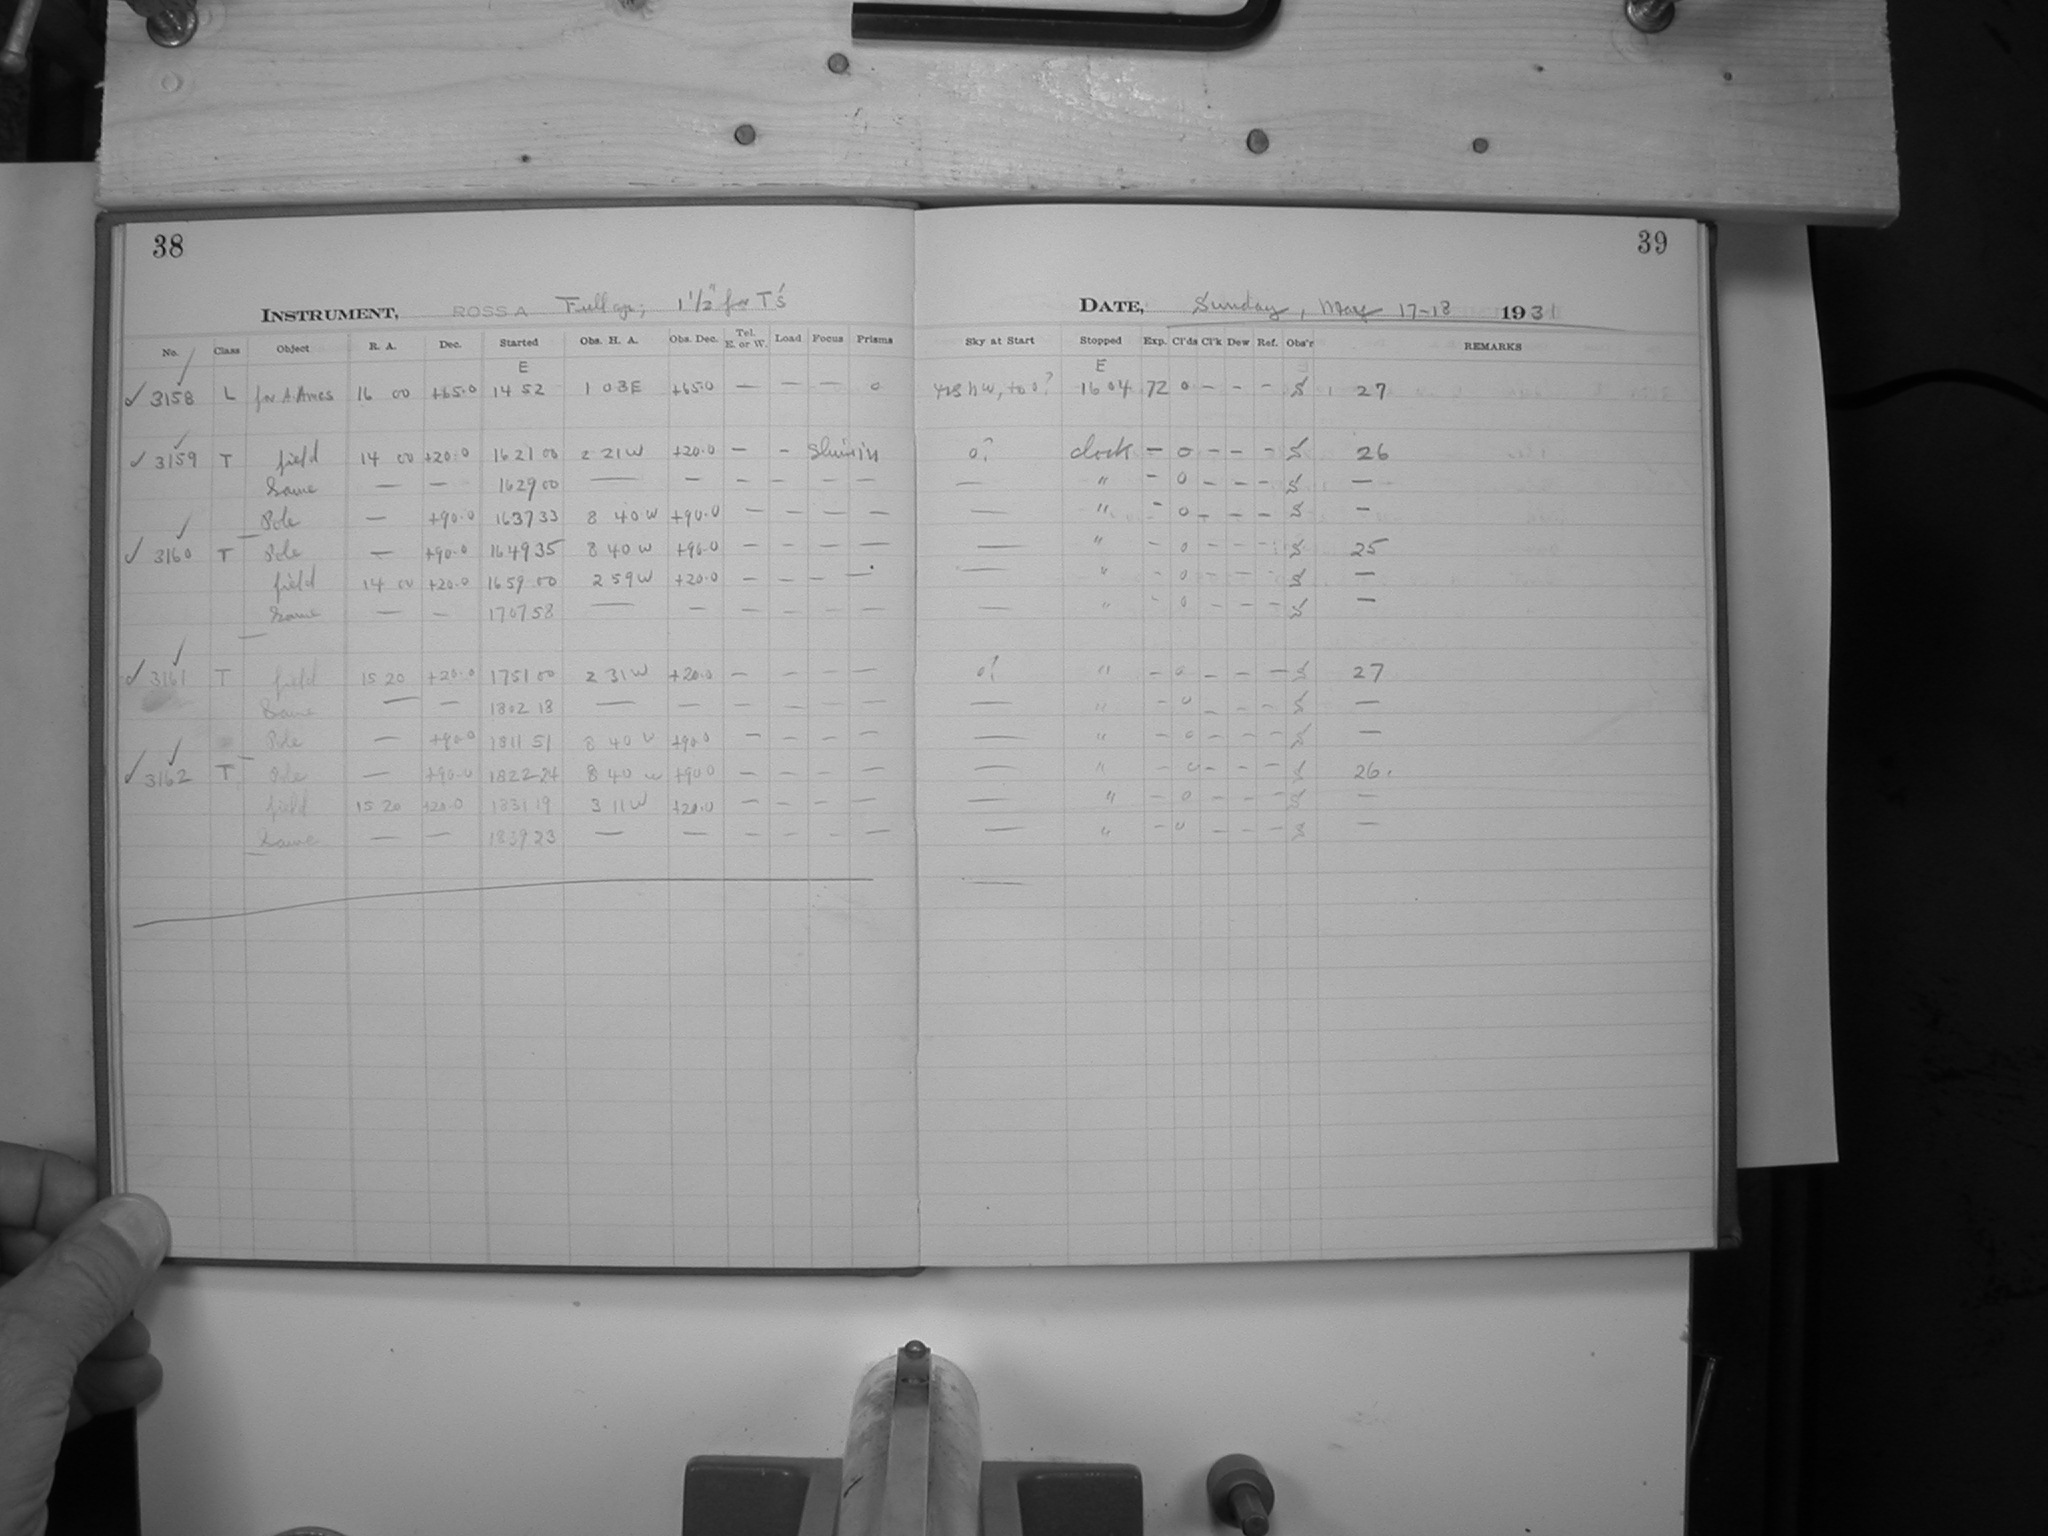 38
39
INSTRUMENT, ROSS A Full ap; 1 1/2" for T's
DATE, Sunday, May 17-18 1931
No. Class Object R. A. Dec. Started Obs. H. A. Obs. Dec. Tel. E. or W. Load Focus Prisms Sky at Start Stopped Exp. Cl'ds Cl'k Dew Ref. Obs'r REMARKS
E E
✓ 3158 L for A. Ames 16 00 +65.0 14 52 1 03E +65.0 — — — 0 16 04 72 0 — — — S 27
✓ 3159 T field 14 00 +20.0 16 21 00 2 21W +20.0 — — 0? clock — 0 — — — S 26
Same — — 16 29 00 — — — — — — — " — 0 — — — S —
Pole — +90.0 16 37 33 8 40 W +90.0 — — — — — " — 0 — — — S —
✓ 3160 T Pole — +90.0 16 49 35 8 40 W +90.0 — — — — — " — 0 — — — S 25
field 14 00 +20.0 16 59 00 2 59W +20.0 — — — — — " — 0 — — — S —
Same — — 17 07 58 — — — — — — — " — 0 — — — S —
✓ 3161 T field 15 20 +20.0 17 51 00 2 31W +20.0 — — — — 0? " — 0 — — — S 27
Same — — 18 02 18 — — — — — — — " — 0 — — — S —
Pole — +90.0 18 11 51 8 40 W +90.0 — — — — — " — 0 — — — S —
✓ 3162 T Pole — +90.0 18 22 24 8 40 W +90.0 — — — — — " — 0 — — — S 26.
field 15 20 +20.0 18 31 19 3 11W +20.0 — — — — — " — 0 — — — S —
Same — — 18 39 23 — — — — — — — " — 0 — — — S —